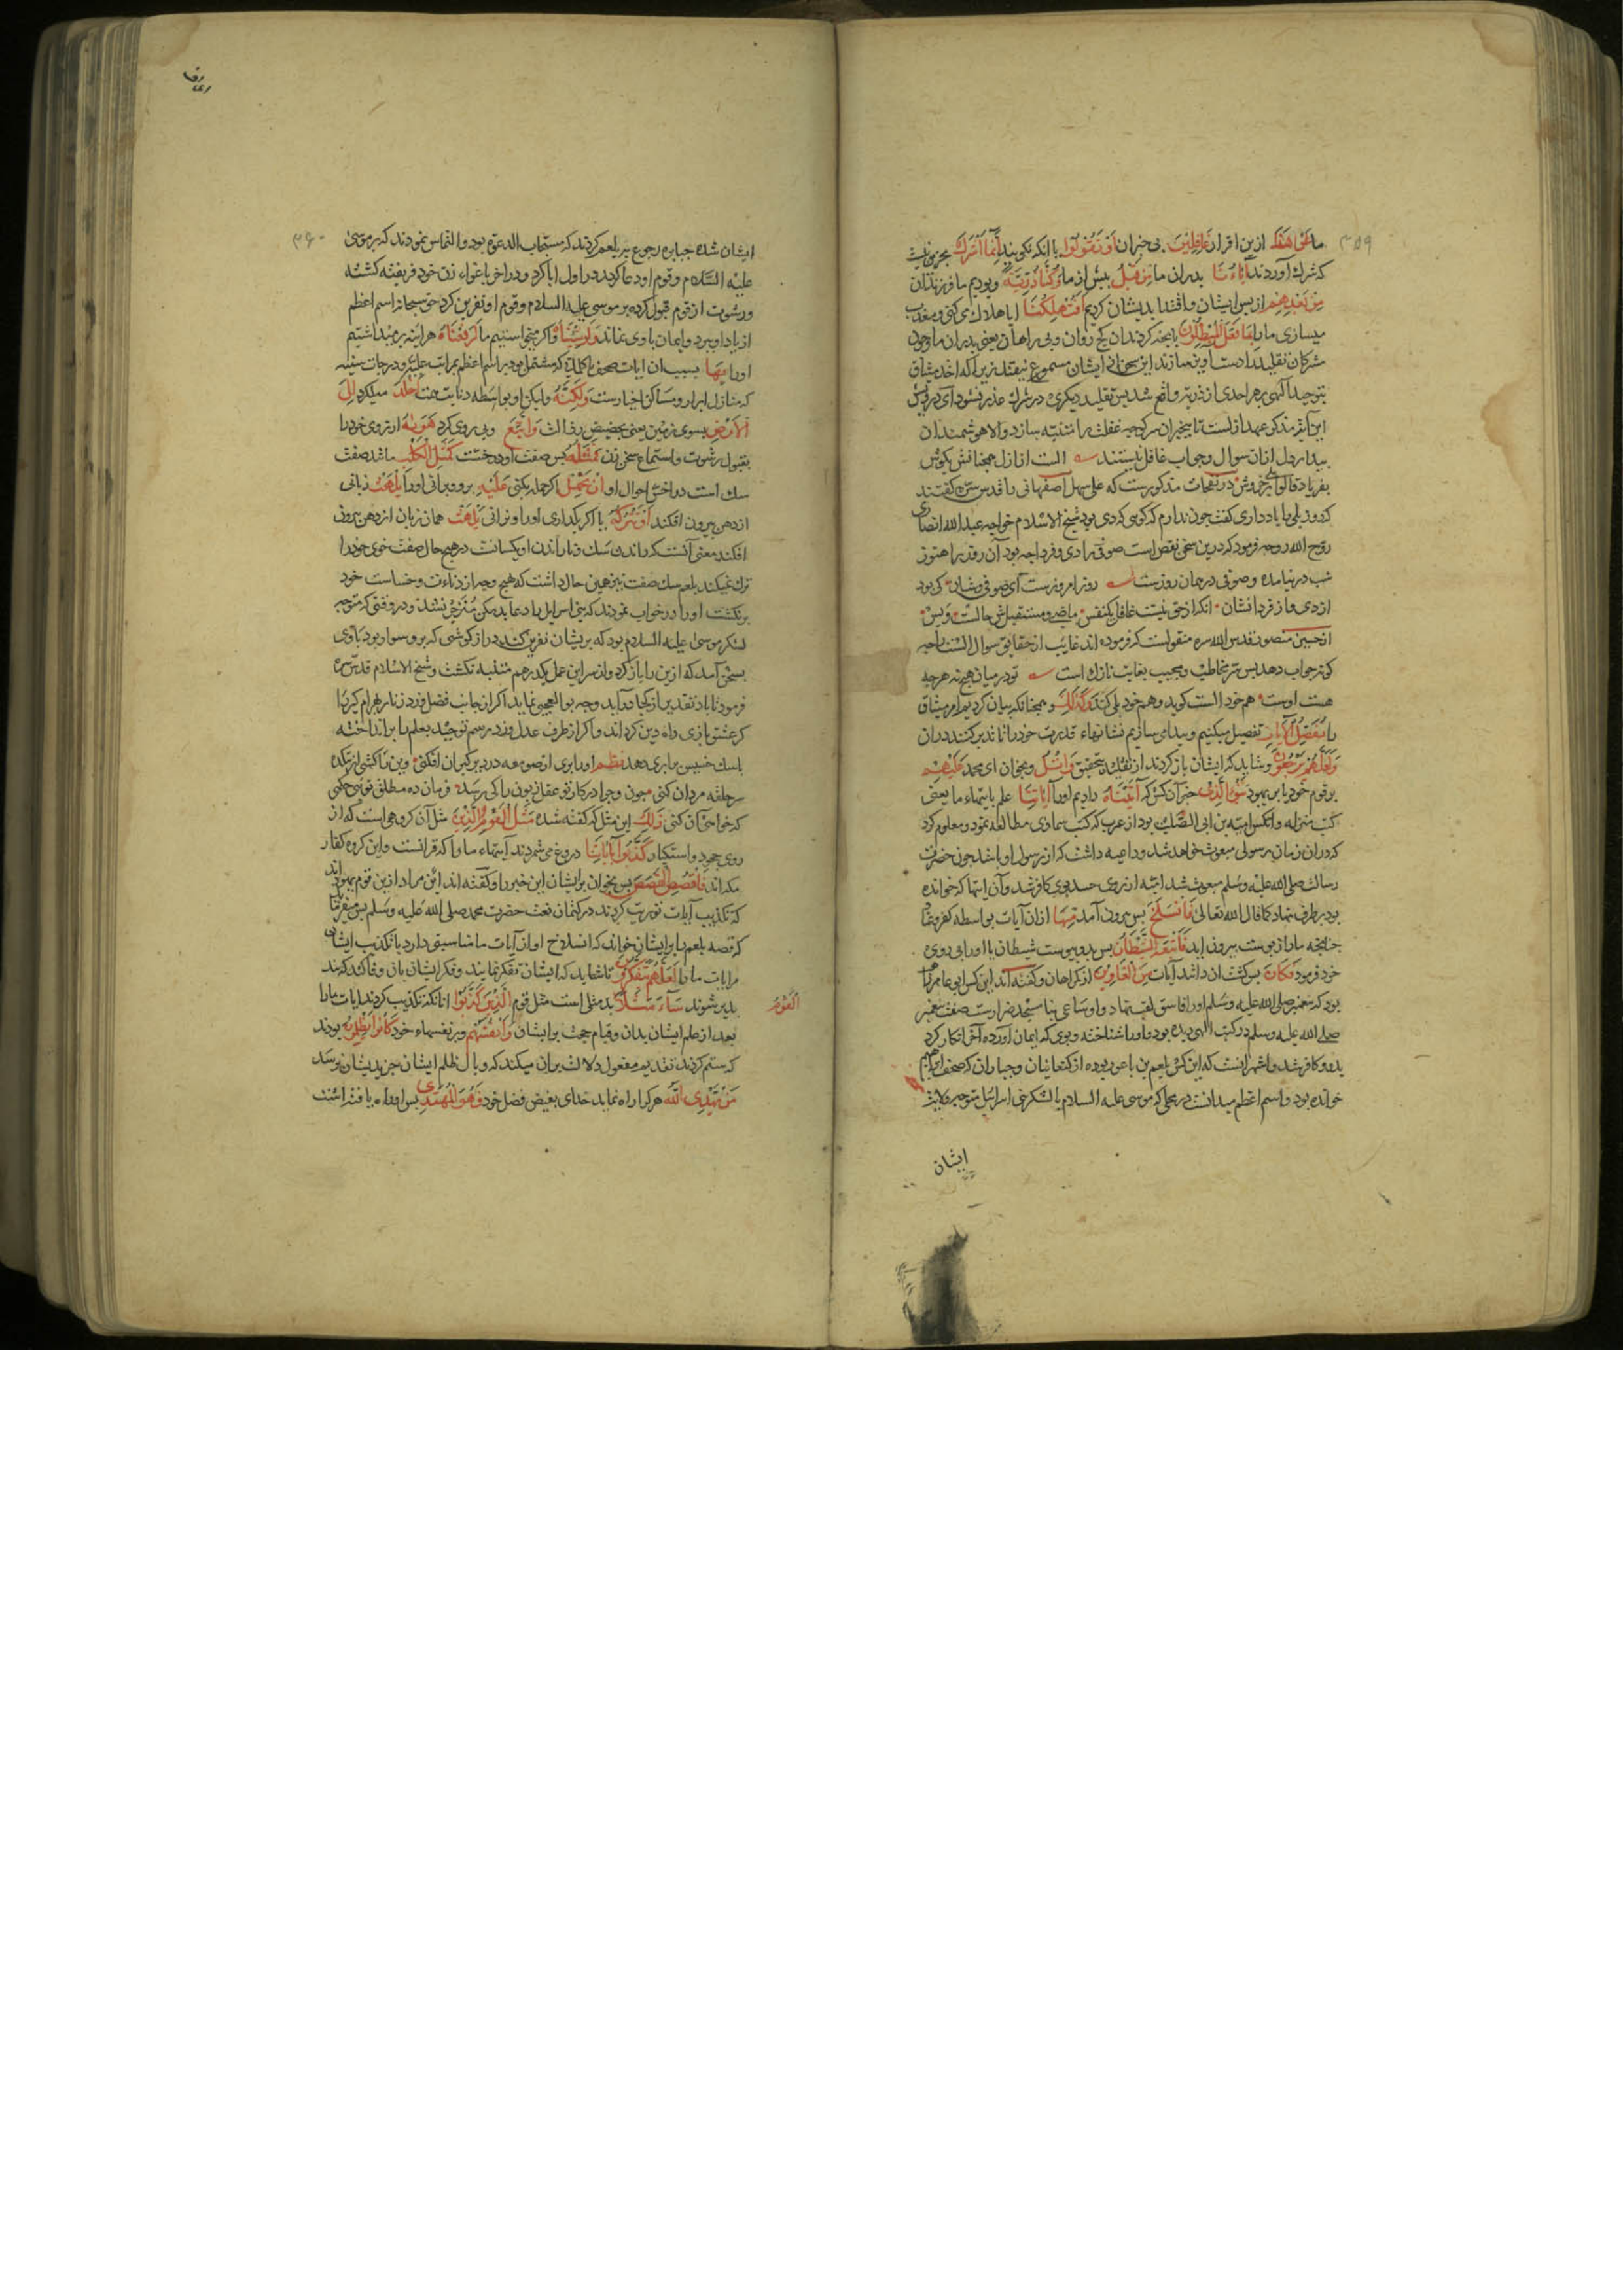 ما عَنْ هَذَا ازین اقرار غَافِلِیْنَ بی خبران اَوْ تَقُوْلُوْا یا انکه نکویند اِنَّمَا اَشْرَكَ بجز این نیست ۳۵۹
که شرك آوردند آبَاؤُنَا پدران ما مِنْ قَبْلُ پیش از ما وَكُنَّا ذُرِّیَّةً و بودیم ما فرزندان
مِنْ بَعْدِهِمْ از پس ایشان و اقتدا بدیشان کردیم اَفَتُهْلِكُنَا ایا هلاك می کنی و معذب
میسازی ما را بِمَا فَعَلَ الْمُبْطِلُوْنَ بانچه کردند ان کج روان و بی راهان یعنی پدران ما وچون
مشرکان تقلید را دست اویز سازند این سخن از ایشان مسموع نیفتد زیرا که اخذ میثاق
بتوحید الهی بر هر احدی از ذریة واقع شد پس تقلید دیکری در شرك عذر نشود ای درویش
این آیة مذکر عهد ازلست تا بیخبران سرکوچه غفلت را متنبه سازد والا هوشمندان
بیدار دل ازان سوال وجواب غافل نیستند الست از ازل همچنانش بکوش
بفریاد قالوا بلی در خروش در نفحات مذکورست که علی سهل اصفهانی را قدس سره کفتند
که روز بلی را یاد داری کفت چون ندارم که کویی که دی بود شیخ الاسلام خواجه عبد الله انصاری
روح الله روحه فرمود که درین سخن نقص است صوفی را دی و فردا چه بود آن روز را هنوز
شب در نیامده وصوفی در همان روزست روز امروزست ای صوفی و شان کی بود
از دی و از فردا نشان انکه از حق نیست غافل یکنفس ماضی و مستقبلش حالست و بس
از حسین منصور قدس الله سره منقولست که فرموده اند غایب از حقایق سوال الست را چه
کونه جواب دهد پس سر مخاطب و مجیب بغایت نازك است تو در میان هیچ نه هر چه
هست اوست هم خود الست کوید و هم خود بلی کند وَكَذٰلِكَ و همچنانکه بیان کردیم امر میثاق
را نُفَصِّلُ الْاٰیَاتِ تفصیل میکنیم و پیدا می سازیم نشانهاء قدرت خود را تا تدبر کنند دران
وَلَعَلَّهُمْ یَرْجِعُوْنَ و شاید که ایشان باز کردند از تقلید بتحقیق وَاتْلُ و بخوان ای محمد عَلَیْهِمْ
بر قوم خود یا بر یهود نَبَأَ الَّذِیْ خبر آن کس که آتَیْنَاهُ دادیم او را آیَاتِنَا علم بایتهاء ما یعنی
کتب منزله و انکس امیه بن ابی الصلت بود از عرب که کتب سماوی مطالعه نمود و معلوم کرد
که دران زمان رسولی مبعوث خواهد شد و داعیه داشت که ان رسول او باشد چون حضرت
رسالت صلی الله علیه وسلم مبعوث شد امیه از روی حسد بوی کافر شد و آن ایتها که خوانده
بود بر طرف نهاد کما قال الله تعالی فَانْسَلَخَ پس بیرون آمد مِنْهَا ازان آیات بواسطه کفر و نفاق
چنانچه مار از پوست بیرون اید فَاَتْبَعَهُ الشَّیْطَانُ پس بدو پیوست شیطان یا او را پی روی
خود فرمود فَكَانَ پس کشت ان داننده آیات مِنَ الْغَاوِیْنَ از کمراهان و کفته اند این کس ابو عامر راهب
بود که پیغمبر صلی الله علیه وسلم او را فاسق لقب نهاد و او ساعی بناء مسجد ضرارست صفت پیغمبر
صلی الله علیه وسلم در کتب الهی دیده بود و او را شناخته و بوی که ایمان آورده آخر انکار کرد
بدو و کافر شد و اشهر انست که این کس بلعم بن باعور بوده از کنعانیان و جباران که صحف ابراهیم
خوانده بود و اسم اعظم میدانست در محلی که موسی علیه السلام با لشکر بنی اسرائیل متوجه ولایت
ایشان
ایشان شده جبابره رجوع به بلعم کردند که مستجاب الدعوة بود و التماس نمودند که بر موسی ۳۶۰
علیه السلام و قوم او دعا کند در اول ابا کرد و در اخر باغواء زن خود فریفته کشته
و رشوت از قوم قبول کرده بر موسی علیه السلام و قوم او نفرین کرد حق سبحانه اسم اعظم
از یاد او ببرد و ایمان با وی نماند وَلَوْ شِئْنَا و اکر میخواستیم ما لَرَفَعْنَاهُ هر اینه برمیداشتیم
او را بِهَا بسبب ان ایات صحف یا کلماتی که مشتمل بود بر اسم اعظم بمراتب علیه و درجات سنیه
که منازل ابرار و مساکن اخیارست وَلٰكِنَّهُ ولیکن او بواسطه دنائت همت اَخْلَدَ میل کرد اِلَى
الْاَرْضِ بسوی زمین یعنی بحضیض رذالت وَاتَّبَعَ و پی روی کرد هَوَاهُ ارزوی خود را
بقبول رشوت و استماع سخن زن فَمَثَلُهُ پس صفت او در خست كَمَثَلِ الْكَلْبِ مانند صفت
سك است در اخس احوال او اِنْ تَحْمِلْ اکر حمله کنی عَلَیْهِ برو و برانی او را یَلْهَثْ زبانی
از دهن بیرون افکند اَوْ تَتْرُكْهُ یا اکر بکذاری او را و نرانی یَلْهَثْ همان زبان از دهن بیرون
افکند معنی آنست که راندن سك و ناراندن او یکسانست در هیچ حال صفت خوی خود را
ترك نمیکند بلعم سك صفت نیز همین حال داشت که هیچ وجه از دناءت و خساست خود
برنکشت او را در خواب نمودند که بنی اسرایل را دعاء بد مکن منزجر نشد و در وقتی که متوجه
لشکر موسی علیه السلام بود که بریشان نفرین کند دراز کوشی که برو سوار بود با وی
بسخن آمد که ازین راه باز کرد و از سر این عمل بکذر هم متنبه نکشت و شیخ الاسلام قدس سره
فرمود تا باد تقدیر از کجا در آید وچه بوالعجبی نماید اکر از جانب فضل وزد زنار بهرام کبر را
کمر عشق بازی راه دین کرداند و اکر از طرف عدل وزد رسم توحید بعلم را برانداخته
با سك خسیس برابری دهد نظم او را بری از صومعه در دیر کبران افکنی وین را کشی از بتکده
سر حلقه مردان کنی چون و چرا در کار تو عقل زبون را کی رسد فرمان ده مطلق تویی حکمی
که خواهی آن کنی ذٰلِكَ این مثل که کفته شده مَثَلُ الْقَوْمِ الَّذِیْنَ مثل آن کروهی است که از
روی جحود و استکبار كَذَّبُوْا بِآیَاتِنَا دروغ می شمردند ایتهاء ما را که قرانست و این کروه کفار
مکه اند فَاقْصُصِ الْقَصَصَ پس بخوان برایشان این خبر را و کفته اند این مراد ازین قوم یهود اند
که تکذیب آیات توریت کردند در کتمان نعت حضرت محمد صلی الله علیه وسلم پس میفرماید
که قصه بلعم را برایشان خواند که انسلاخ او از آیات ما مناسبتی دارد با تکذیب ایشان
مر ایات ما را لَعَلَّهُمْ یَتَفَكَّرُوْنَ تا شاید که ایشان تفکر نمایند و فکر ایشان بان وفا کند که پند
پذیر شوند سَآءَ مَثَلًا بد مثلی است مثل قوم الْقَوْمُ الَّذِیْنَ كَذَّبُوْا انانکه تکذیب کردند ایات ما را
بعد از علم ایشان بدان و قیام حجت برایشان وَاَنْفُسَهُمْ و بر نفسهاء خود كَانُوْا یَظْلِمُوْنَ بودند
که ستم کردند تقدیم مفعول دلالت بران میکند که وبال ظلم ایشان جز بدیشان نرسد
مَنْ یَهْدِی اللّٰهُ هر کرا راه نماید خدای بفیض فضل خود فَهُوَ الْمُهْتَدِی پس او راه یافته است